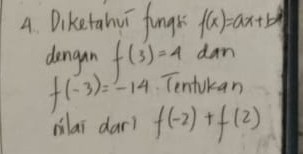 4. Diketahui fungsi f(x)=ax+b
dengan f(3)=4 dan
f(-3)=-14. Tentukan
nilai dari f(-2)+f(2)